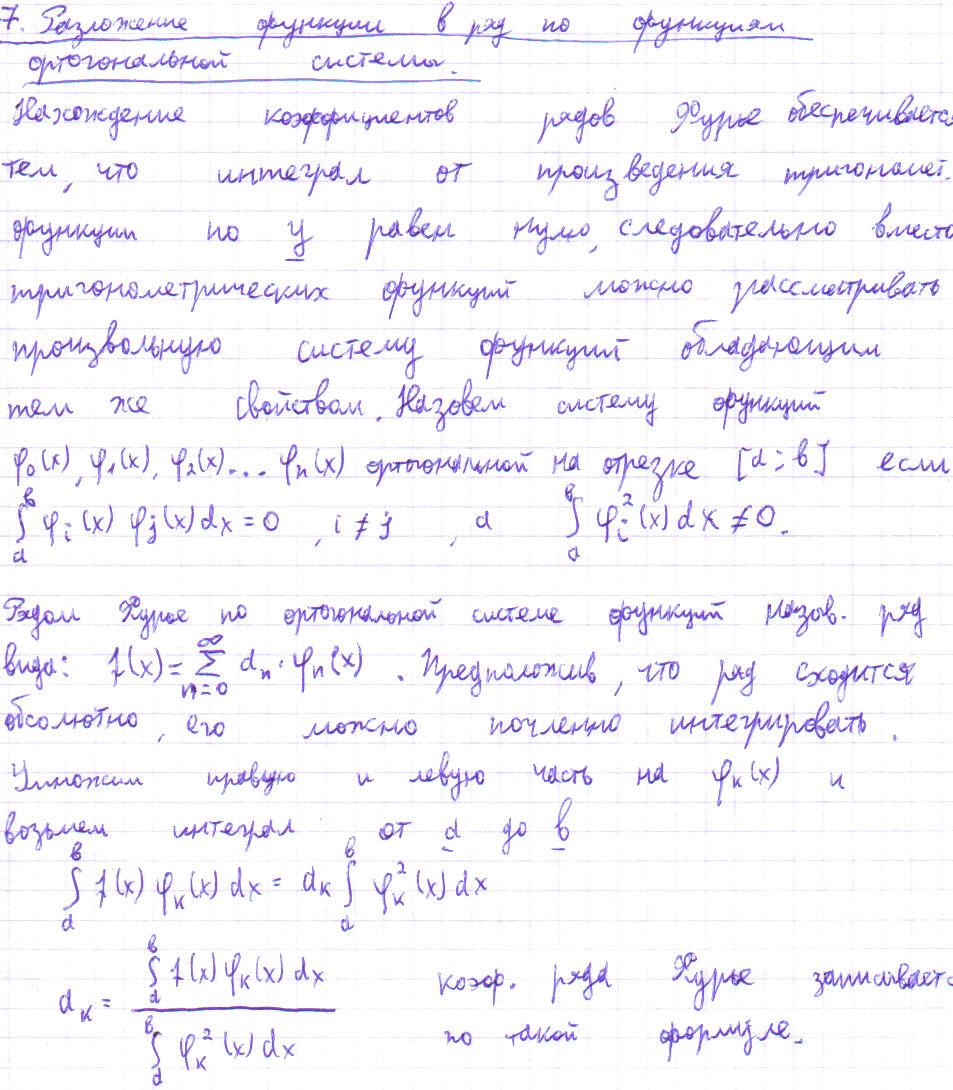 7. Разложение функции в ряд по функциям
ортогональной системы.
Нахождение коэффициентов рядов Фурье обеспечивается
тем, что интеграл от произведения тригономет.
функции по y равен нулю, следовательно вместо
тригонометрических функций можно рассматривать
произвольную систему функций обладающим
тем же свойством. Назовем систему функций
φ₀(x), φ₁(x), φ₂(x)... φₙ(x) ортогональной на отрезке [a; в] если
∫ₐᵇ φᵢ(x) φⱼ(x) dx = 0, i ≠ j, а ∫ₐᵇ φᵢ²(x) dx ≠ 0.
Рядом Фурье по ортогональной системе функций назов. ряд
вида: f(x) = ∑ₙ₌₀^∞ aₙ · φₙ(x). Предположив, что ряд сходится
обсолютно, его можно почленно интегрировать.
Умножим правую и левую часть на φₖ(x) и
возьмем интеграл от a до в
∫ₐᵇ f(x) φₖ(x) dx = aₖ ∫ₐᵇ φₖ²(x) dx
aₖ = ∫ₐᵇ f(x) φₖ(x) dx / ∫ₐᵇ φₖ²(x) dx коэф. ряда Фурье записывается
по такой формуле.